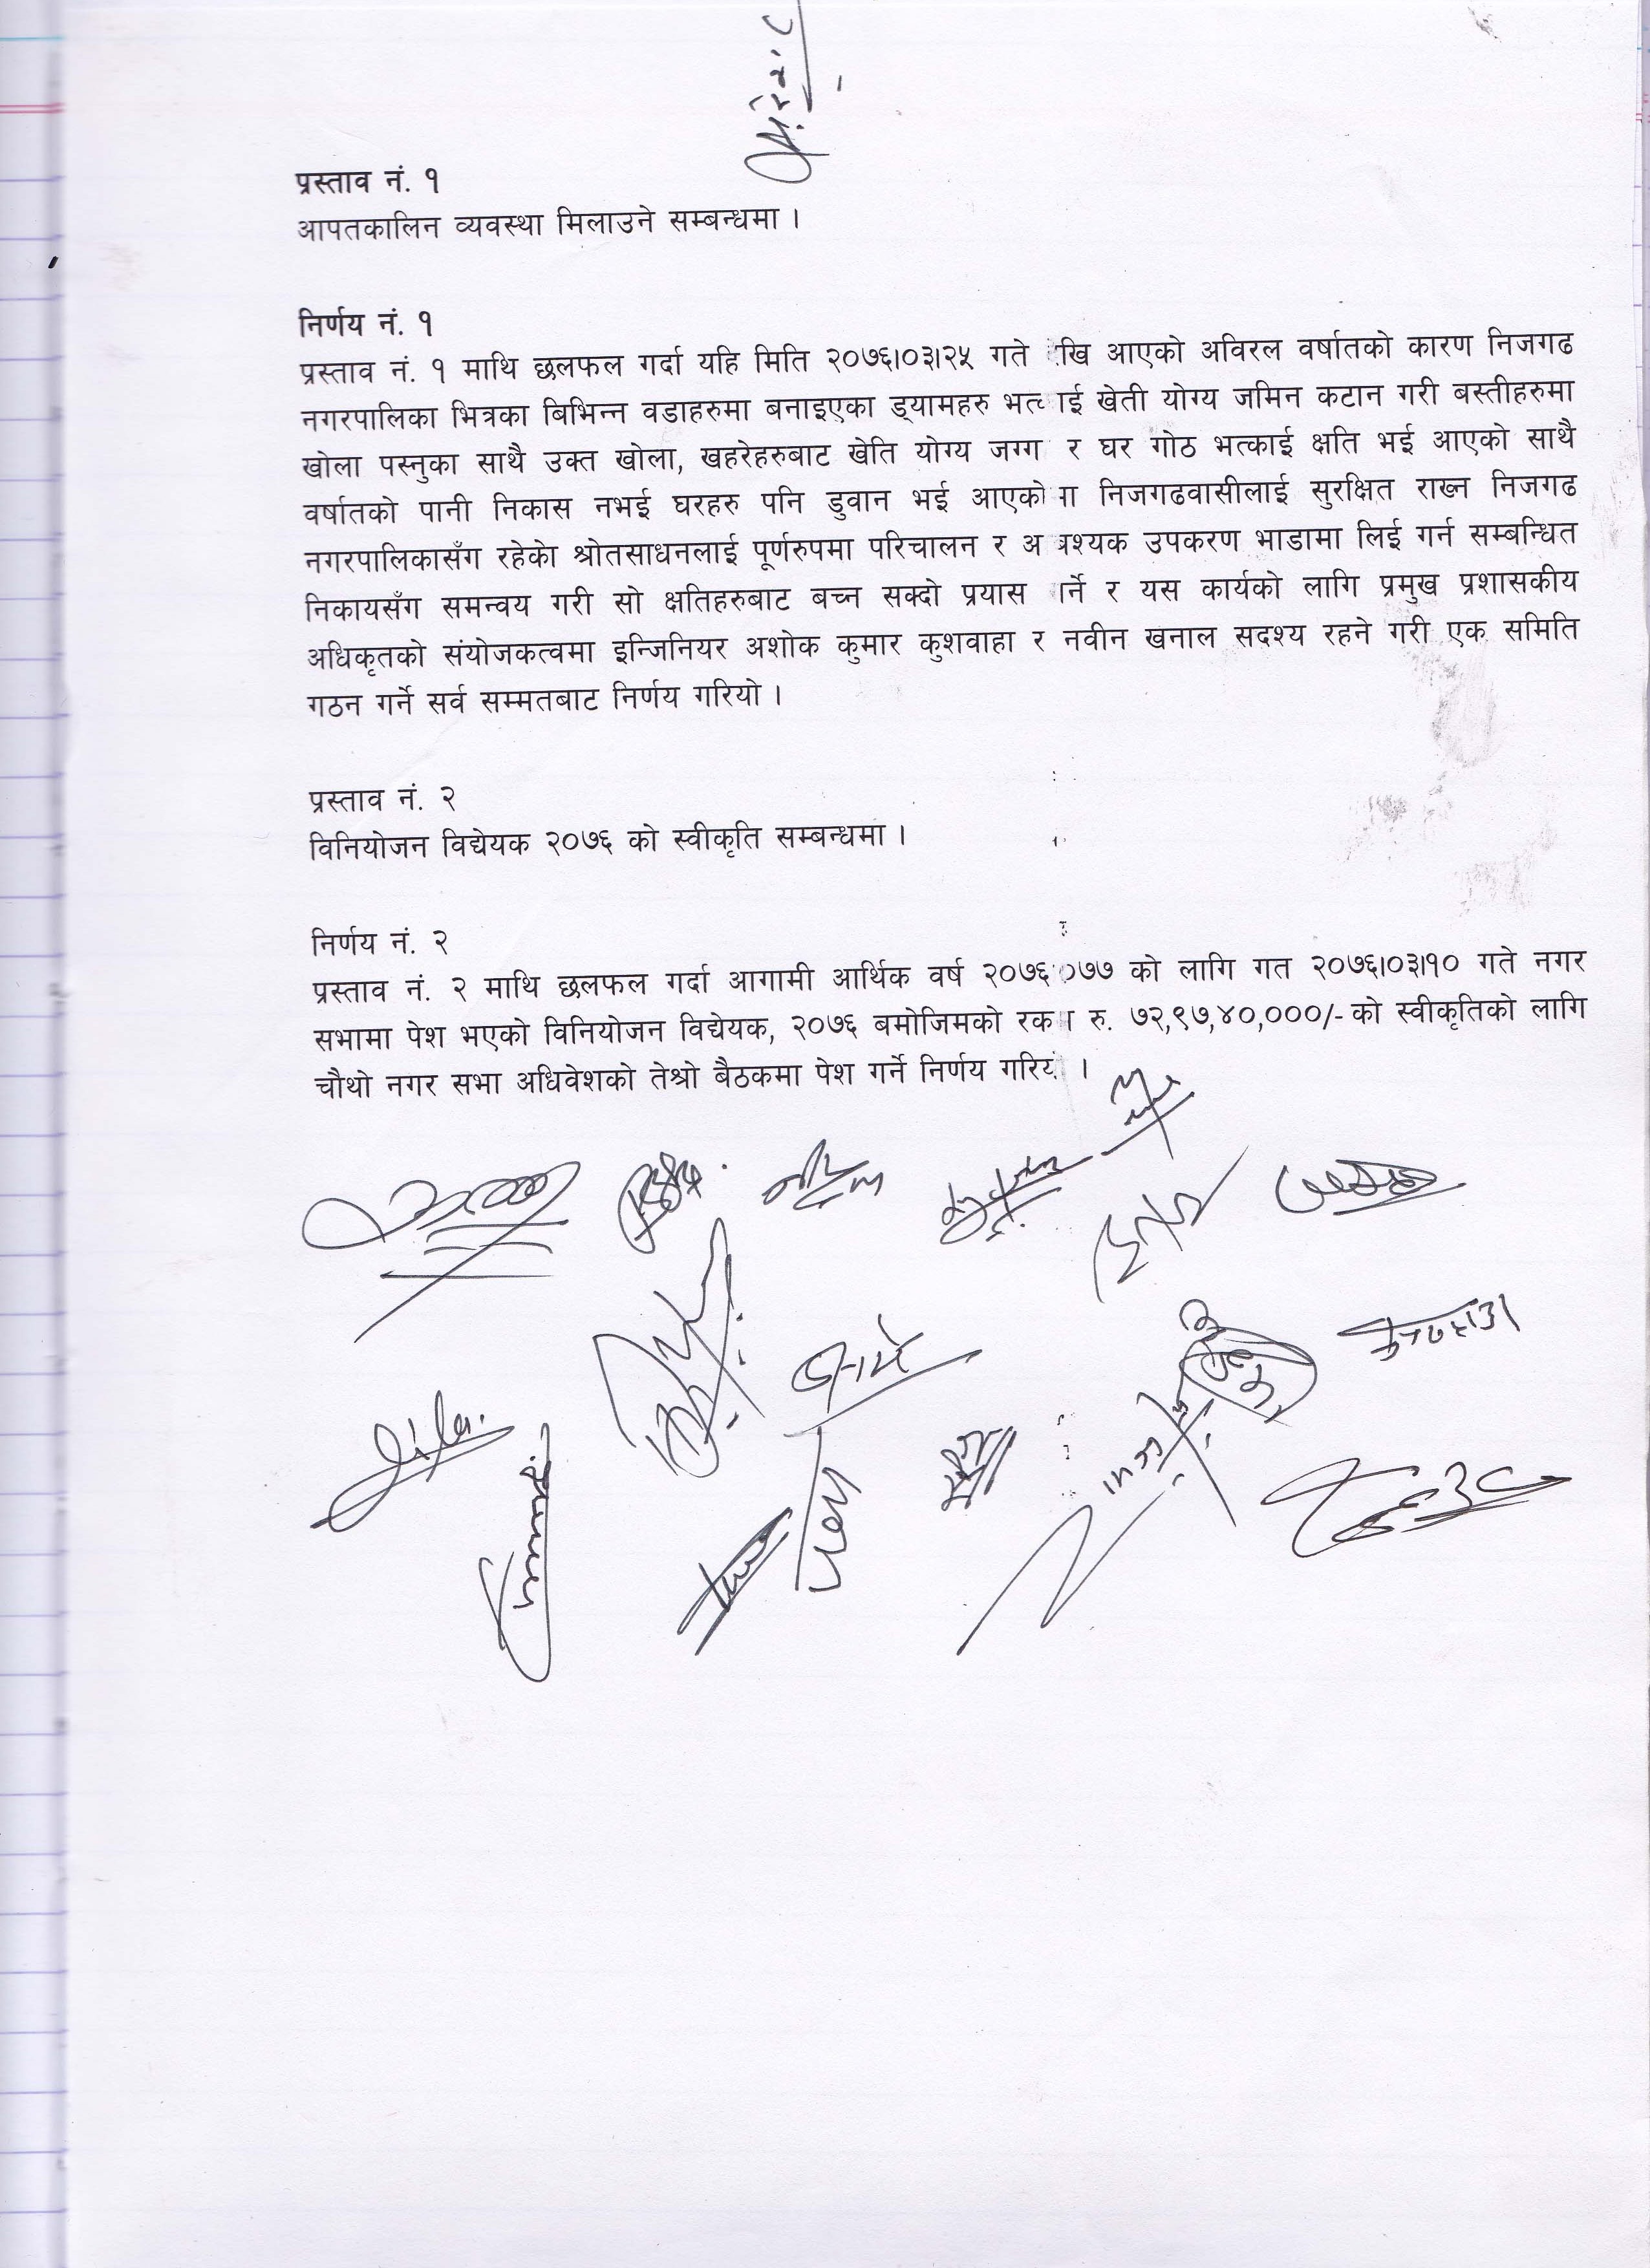 प्रस्ताव नं. १
आपतकालिन व्यवस्था मिलाउने सम्बन्धमा ।
निर्णय नं. १
प्रस्ताव नं. १ माथि छलफल गर्दा यहि मिति २०७६।०३।२५ गते देखि आएको अविरल वर्षातको कारण निजगढ
नगरपालिका भित्रका बिभिन्न वडाहरुमा बनाइएका ड्यामहरु भत्काई खेती योग्य जमिन कटान गरी बस्तीहरुमा
खोला पस्नुका साथै उक्त खोला, खहरेहरुबाट खेति योग्य जग्गा र घर गोठ भत्काई क्षति भई आएको साथै
वर्षातको पानी निकास नभई घरहरु पनि डुवान भई आएको निजगढवासीलाई सुरक्षित राख्न निजगढ
नगरपालिकासँग रहेको श्रोतसाधनलाई पूर्णरुपमा परिचालन र आवश्यक उपकरण भाडामा लिई गर्न सम्बन्धित
निकायसँग समन्वय गरी सो क्षतिहरुबाट बच्न सक्दो प्रयास गर्ने र यस कार्यको लागि प्रमुख प्रशासकीय
अधिकृतको संयोजकत्वमा इन्जिनियर अशोक कुमार कुशवाहा र नवीन खनाल सदश्य रहने गरी एक समिति
गठन गर्ने सर्व सम्मतबाट निर्णय गरियो ।
प्रस्ताव नं. २
विनियोजन विद्येयक २०७६ को स्वीकृति सम्बन्धमा ।
निर्णय नं. २
प्रस्ताव नं. २ माथि छलफल गर्दा आगामी आर्थिक वर्ष २०७६।०७७ को लागि गत २०७६।०३।१० गते नगर
सभामा पेश भएको विनियोजन विद्येयक, २०७६ बमोजिमको रकम रु. ७२,९७,४०,०००/- को स्वीकृतिको लागि
चौथो नगर सभा अधिवेशको तेश्रो बैठकमा पेश गर्ने निर्णय गरियो ।